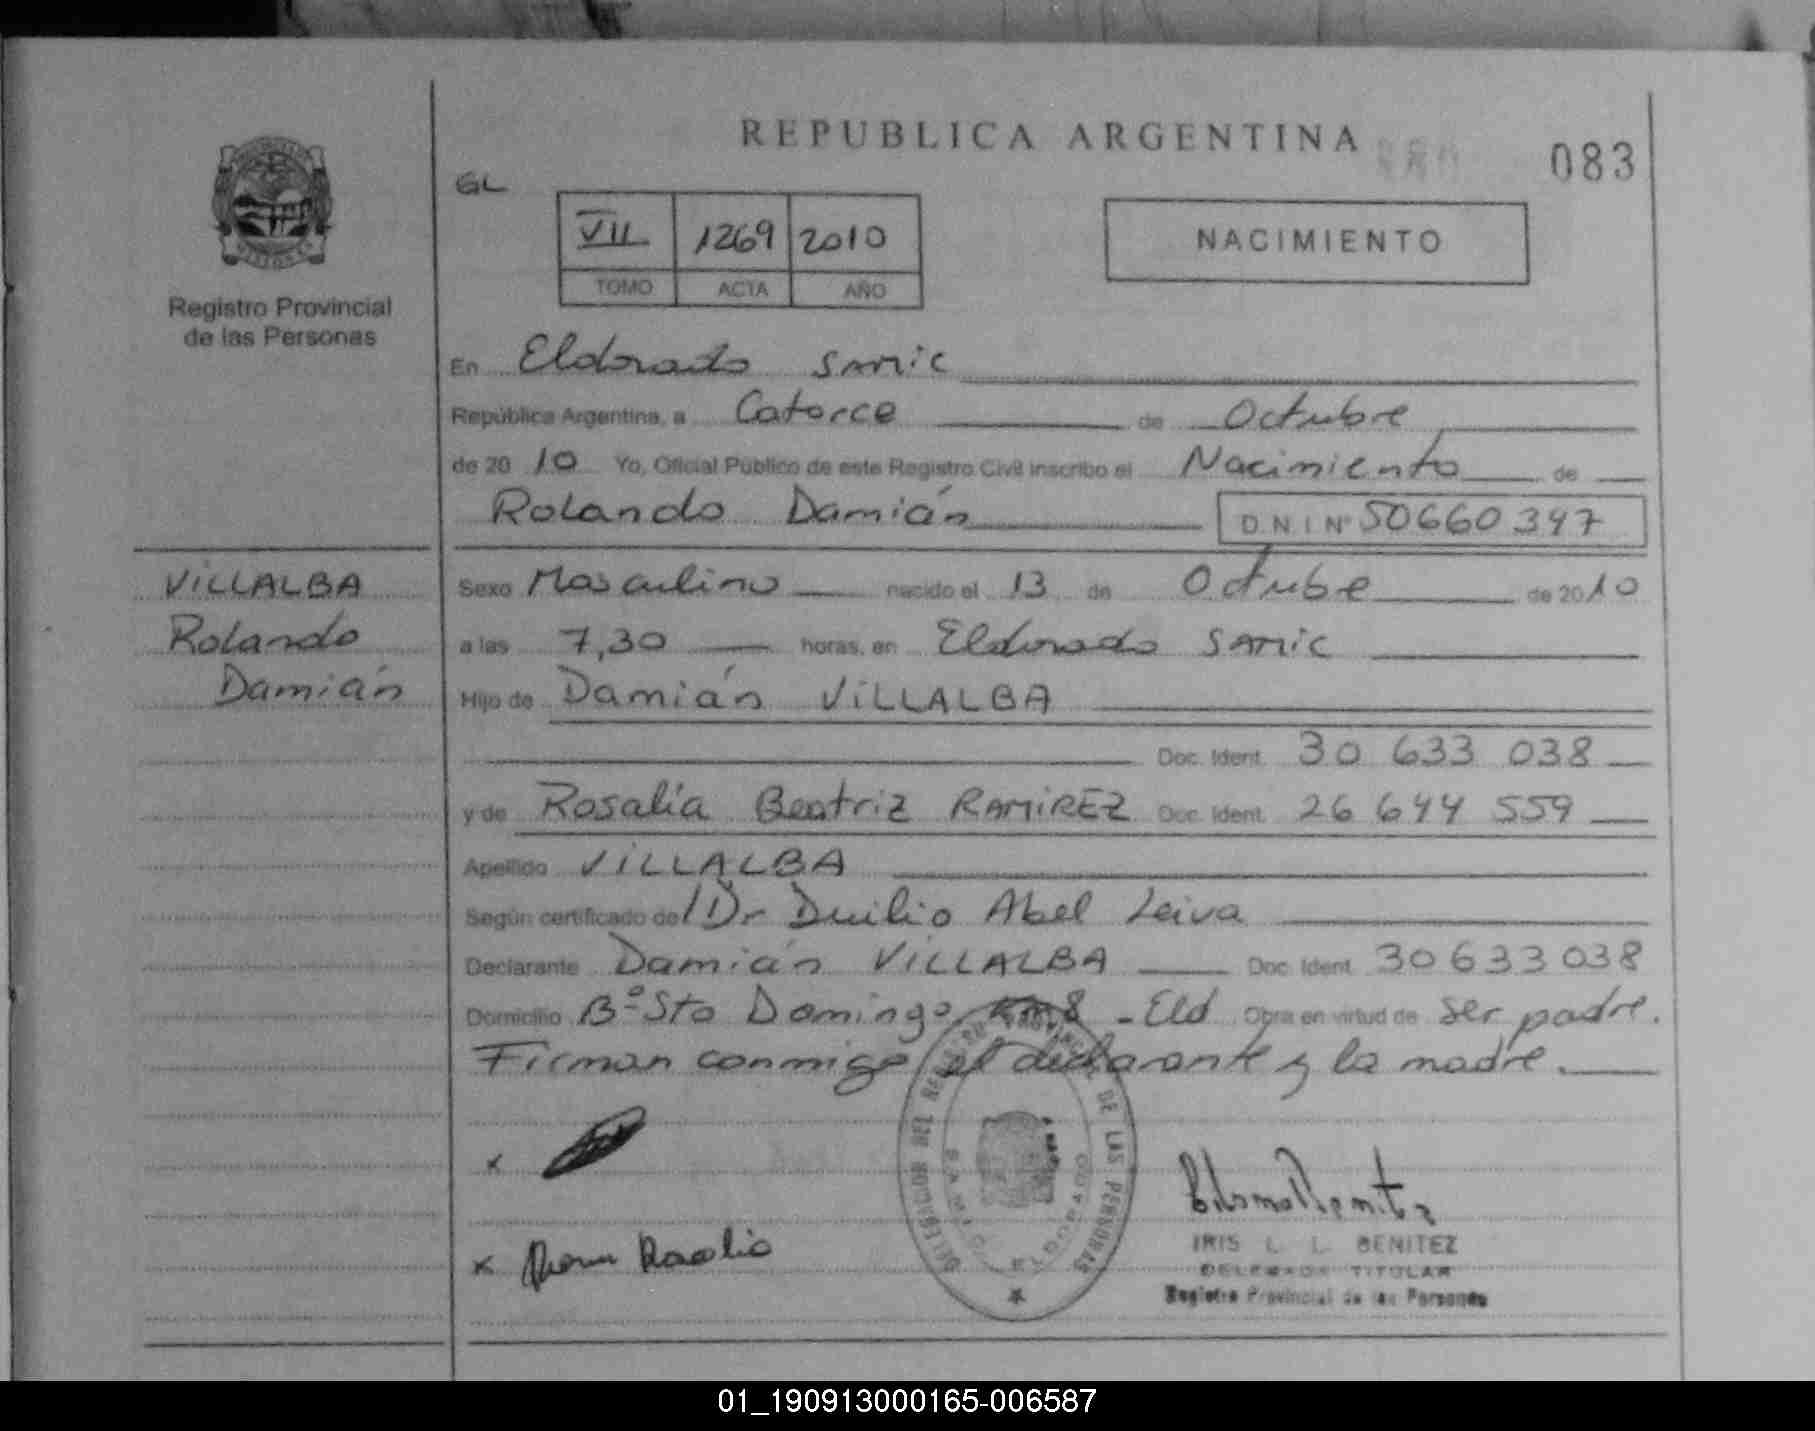 REPUBLICA ARGENTINA
083
GL
VII 1269 2010
TOMO ACTA AÑO
NACIMIENTO
Registro Provincial
de las Personas
En Eldorado SAMIC
República Argentina, a Catorce de Octubre
de 2010 Yo, Oficial Público de este Registro Civil inscribo el Nacimiento de
Rolando Damián D.N.I Nº 50660347
VILLALBA
Rolando
Damián
Sexo Masculino nacido el 13 de Octubre de 2010
a las 7,30 horas, en Eldorado SAMIC
Hijo de Damián VILLALBA
Doc. Ident. 30 633 038
y de Rosalia Beatriz RAMIREZ Doc. Ident. 26 644 559
Apellido VILLALBA
Según certificado de/Dr Duilio Abel Leiva
Declarante Damián VILLALBA Doc. Ident. 30633038
Domicilio Bº Sto Domingo km8 - Eld Obra en virtud de ser padre.
Firman conmigo el declarante y la madre.
x
x Rosalia
DELEGACION DEL REGISTRO PROVINCIAL DE LAS PERSONAS
S.A.M.I.C. ELDORADO
IRIS L. L. BENITEZ
DELEGADA TITULAR
Registro Provincial de las Personas
01_190913000165-006587